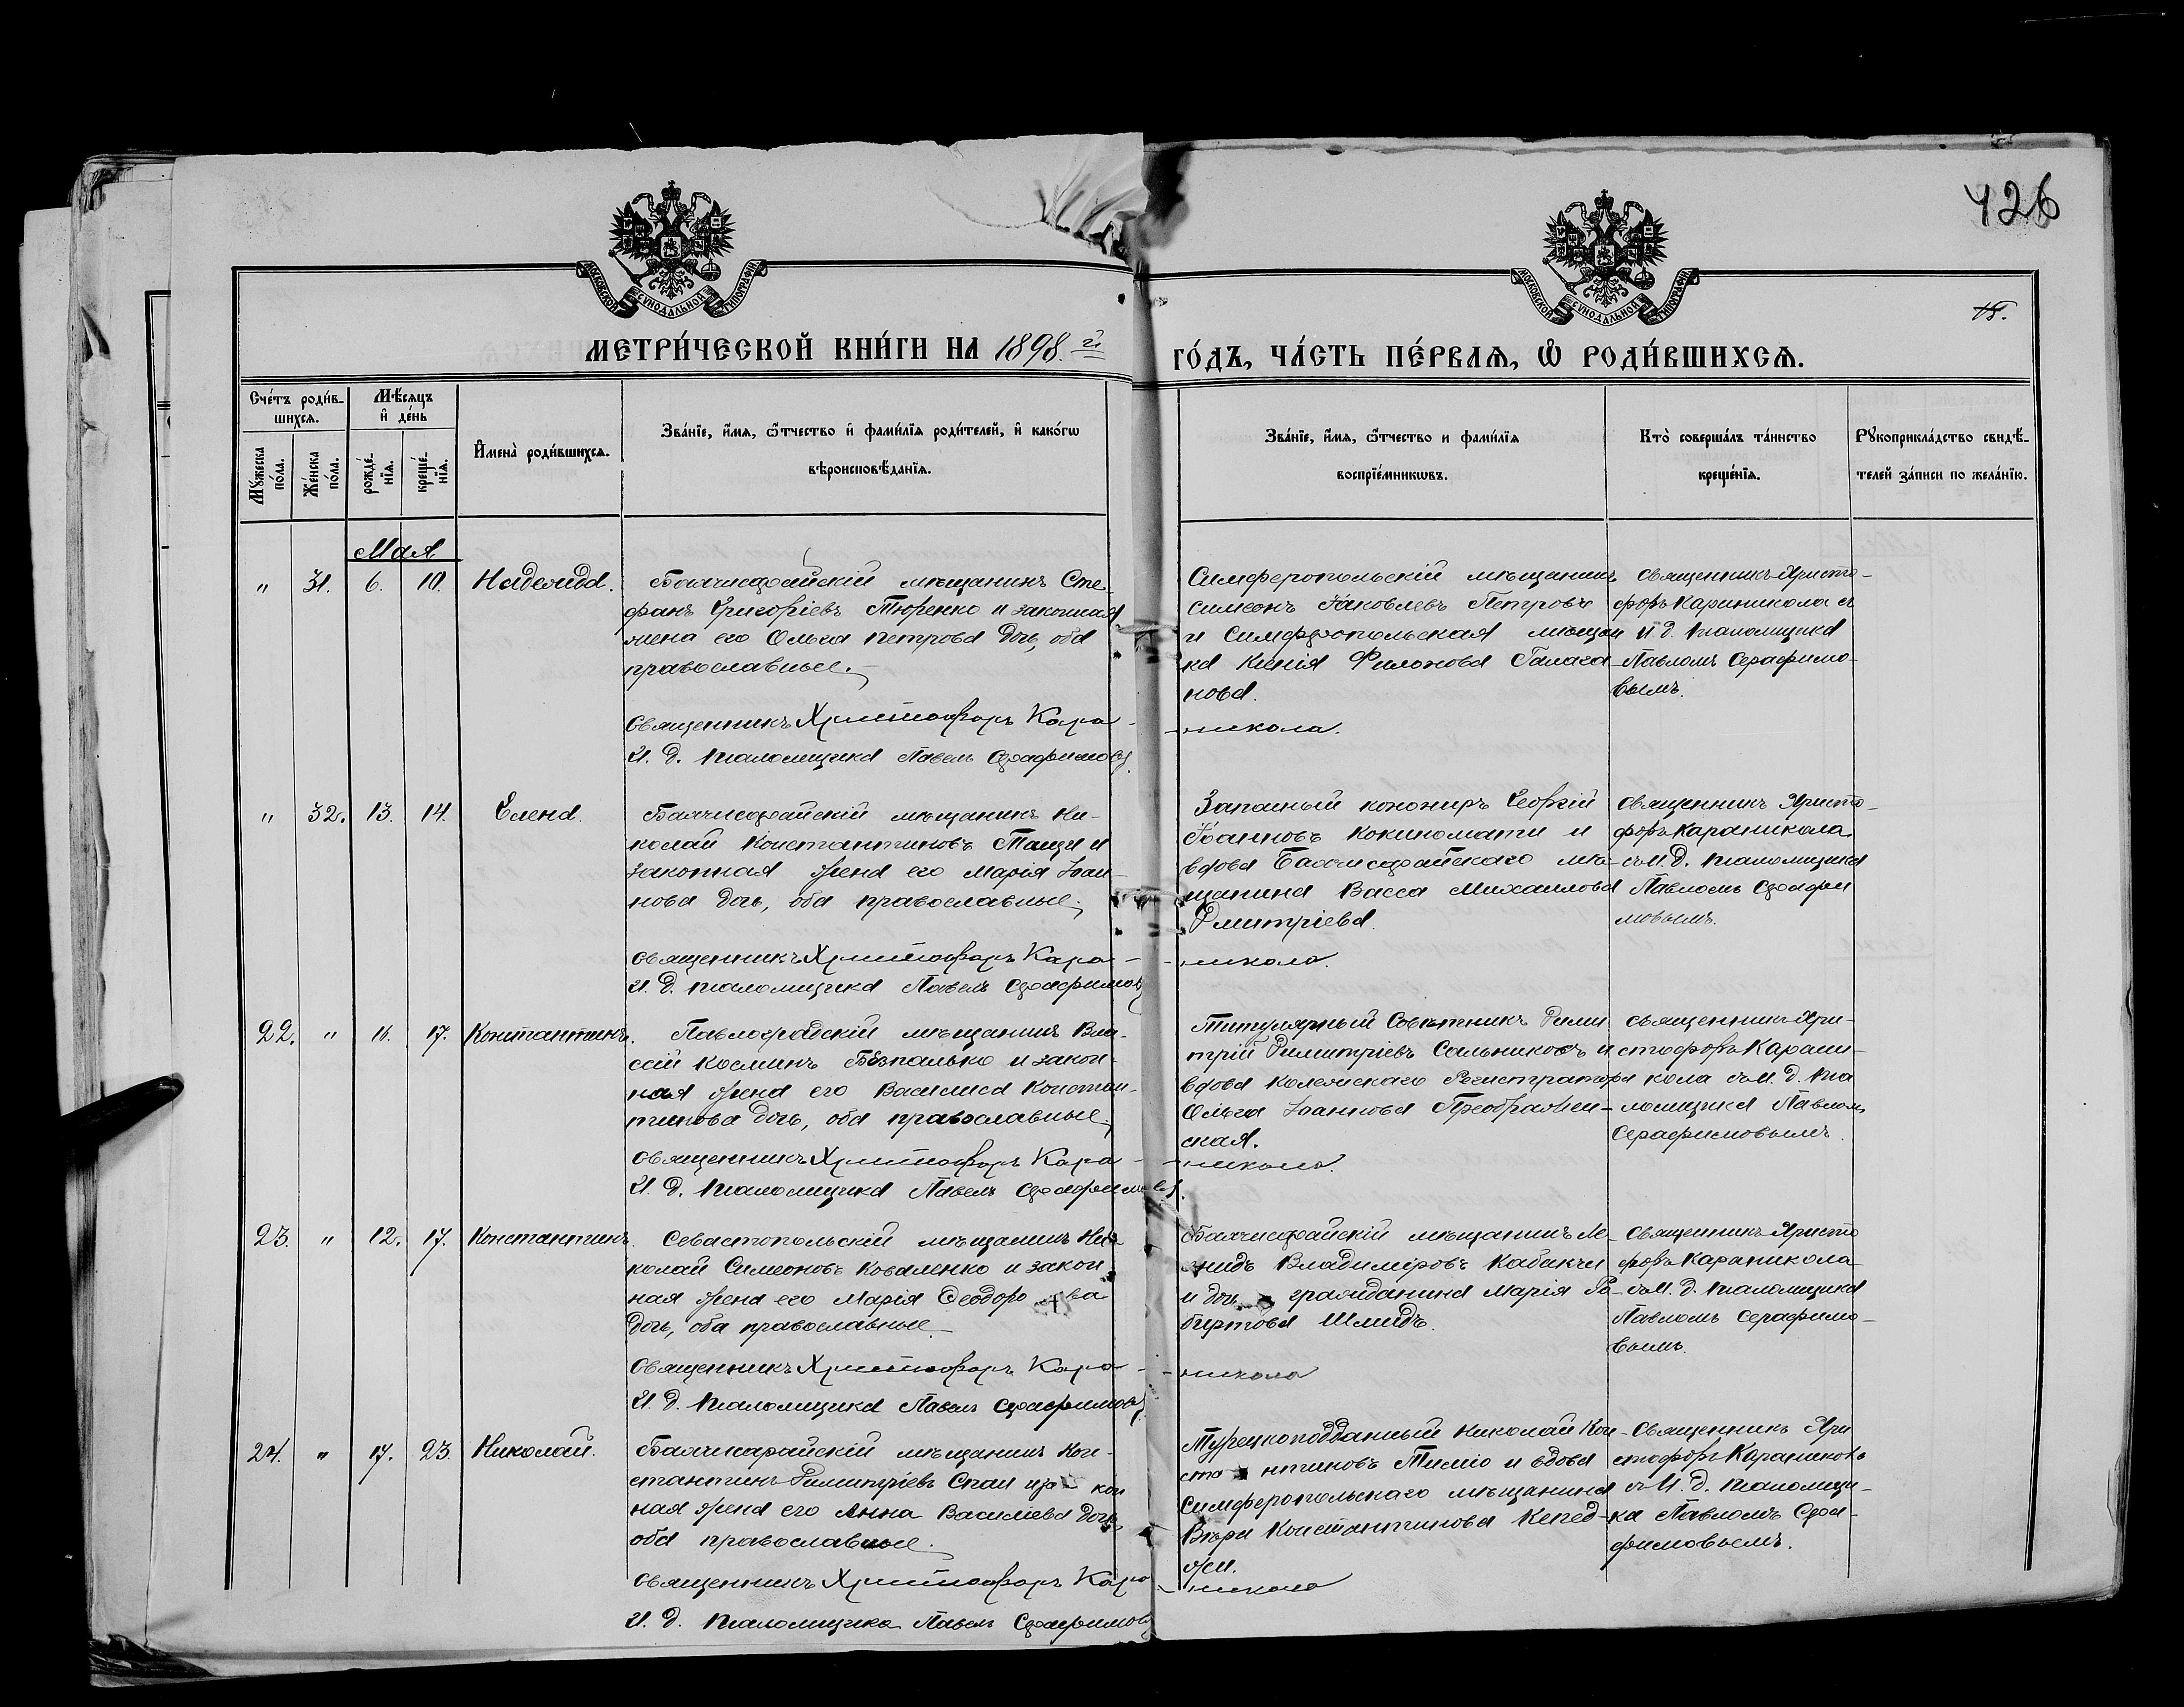 426
МОСКОВСКОЙ СѴНОДАЛЬНОЙ ТИПОГРАФІИ
МОСКОВСКОЙ СѴНОДАЛЬНОЙ ТИПОГРАФІИ
МЕТРИ́ЧЕСКОЙ КНИ́ГИ НА 1898.й
ГО́ДЪ, ЧА́СТЬ ПЕ́РВАѦ, Ѡ҆ РОДИ́ВШИХСѦ.
Сче́тъ роди́в-
шихсѧ.
Мѣ́сяцъ
и҆ де́нь
Мꙋ́жеска
по́ла.
Же́нска
по́ла.
рожде́-
нїѧ.
креще́-
нїѧ.
И҆мена̀ роди́вшихсѧ.
Зва́нїе, и҆́мѧ, ѻ҆́тчество и҆ фамѝлїѧ роди́телей, и҆ како́гѡ
вѣроисповѣ́данїѧ.
Зва́нїе, и҆́мѧ, ѻ҆́тчество и фамѝлїѧ
воспрїе́мникѡвъ.
Кто̀ соверша́лъ та́инство
креще́нїѧ.
Рꙋкоприкла́дство свидѣ́-
телей за́писи по жела́нїю.
Мая
" 31. 6. 10. Надежда.
Бахчисарайскій мѣщанинъ Сте-
фанъ Григоріевъ Тюренко и законная
жена его Ольга Петрова дочь, оба
православные.
Священникъ Христофоръ Кара-
И. д. псаломщика Павелъ Серафимовъ
Симферопольскій мѣщанинъ
Симеонъ Іаковлевъ Петровъ
и Симферопольская мѣщан
ка Ксенія Филонова Галага-
нова.
-никола.
Священникъ Христо-
форъ Караникола съ
И. д. псаломщика
Павломъ Серафимо-
вымъ.
" 32. 13. 14. Елена.
Бахчисарайскій мѣщанинъ Ни-
колай Константиновъ Тащи и
законная жена его Марія Іоан-
нова дочь, оба православные.
Священникъ Христофоръ Кара-
И. д. псаломщика Павелъ Серафимовъ
Запасный канониръ Георгій
Іоанновъ Кокиномати и
вдова Бахчисарайскаго мѣ-
щанина Васса Михаилова
Дмитріева.
-никола.
Священникъ Христо-
форъ Караникола
съ И. д. псаломщика
Павломъ Серафи
мовымъ.
22. " 16. 17. Константинъ.
Павлоградскій мѣщанинъ Вла-
сій Косминъ Безпалько и закон-
ная жена его Василиса Констан-
тинова дочь, оба православные.
Священникъ Христофоръ Кара-
И. д. псаломщика Павелъ Серафимовъ.
Титулярный Совѣтникъ Дими
трій Димитріевъ Сальниковъ и
вдова Колежскаго Регистратора
Ольга Іоаннова Преображен-
ская.
-никола.
Священникъ Хри-
стофоръ Карани-
кола съ И. д. пса
ломщика Павломъ
Серафимовымъ.
23. " 12. 17. Константинъ.
Севастопольскій мѣщанинъ Ни-
колай Симеоновъ Коваленко и закон
ная жена его Марія Ѳеодоро ва
дочь, оба православные.
Священникъ Христофоръ Кара-
И. д. псаломщика Павелъ Серафимовъ
Бахчисарайскій мѣщанинъ Ле-
онидъ Владиміровъ Кабакчи
и дочь гражданина Марія Ро-
бертова Шмидъ.
-никола
Священникъ Христо
форъ Караникола
съ И. д. псаломщика
Павломъ Серафимо-
вымъ.
24. " 17. 23. Николай.
Бахчисарайскій мѣщанинъ Кон-
стантинъ Димитріевъ Спаи и за кон
ная жена его Анна Василіева дочь,
оба православные.
Священникъ Христофоръ Кара-
И. д. псаломщика Павелъ Серафимовъ
Турецкоподданный Николай Кон-
ста нтиновъ Тиміо и вдова
Симферопольскаго мѣщанина
Вѣра Константинова Кепед-
жи.
-никола
Священникъ Хри
стофоръ Караникола
съ И. д. псаломщи-
ка Павломъ Сера-
фимовымъ.